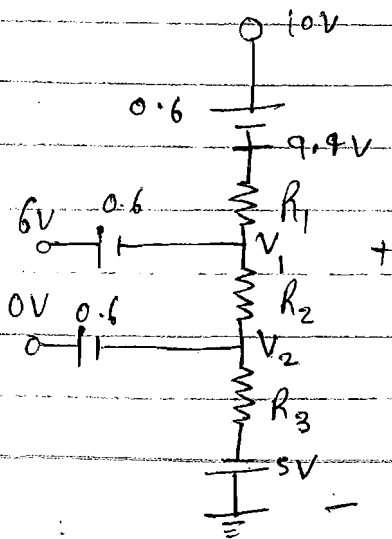 10V
0.6
9.4V
R1
6V
0.6
V1
+
R2
0V
0.6
V2
R3
5V
-